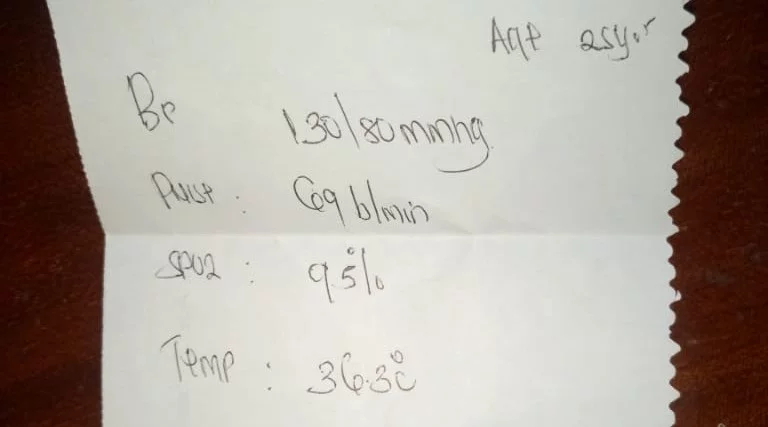 Age 25yor
Bp 130/80mmhg
Pulse : 69 b/min
SPO2 : 95%
Temp : 36.3°c